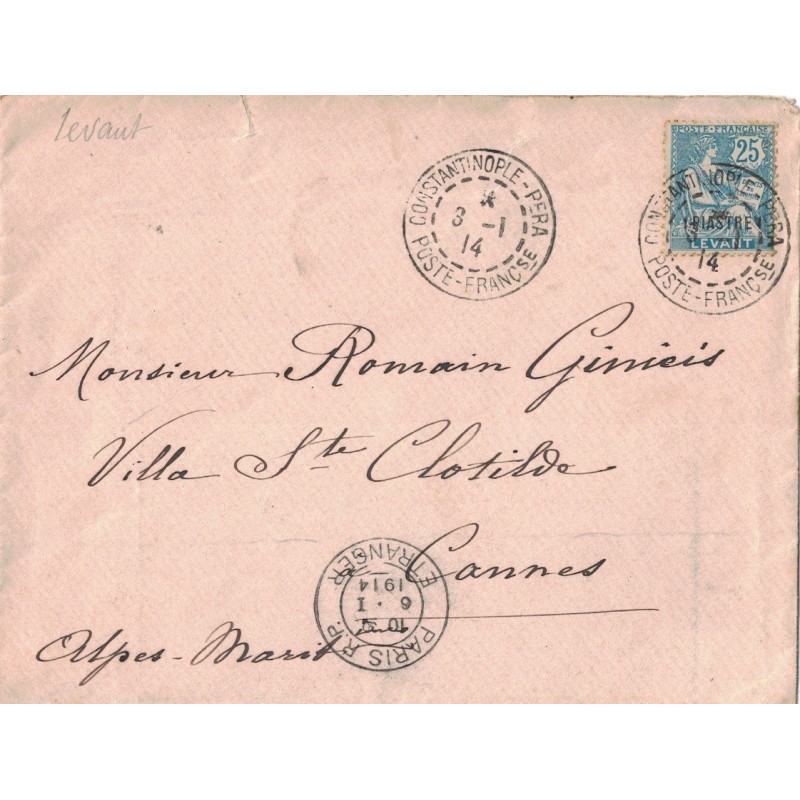 levant
CONSTANTINOPLE-PERA
3 -1
14
POSTE-FRANÇSE
POSTE FRANÇAISE
25
1 PIASTRE 1
LEVANT
CONSTANTINOPLE-PERA
14
POSTE-FRANÇSE
Monsieur Romain Ginieis
Villa Ste Clotilde
Cannes
Alpes-Marit
PARIS R.P.
10
6 · I
1914
ETRANGER